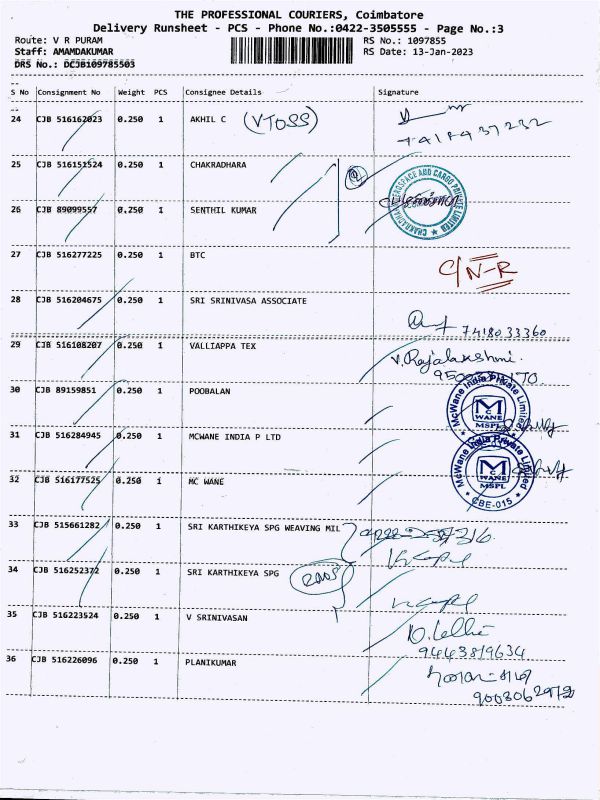 THE PROFESSIONAL COURIERS, Coimbatore
Delivery Runsheet - PCS - Phone No.:0422-3505555 - Page No.:3
Route: V R PURAM
RS No.: 1097855
Staff: AMAMDAKUMAR
RS Date: 13-Jan-2023
DRS No.: DCJB109785503
S No Consignment No Weight PCS Consignee Details Signature
24 CJB 516162023 0.250 1 AKHIL C (VTOSS)
25 CJB 516151524 0.250 1 CHAKRADHARA
26 CJB 89099557 0.250 1 SENTHIL KUMAR
CHAKRADHARA AEROSPACE AND CARGO PRIVATE LIMITED
27 CJB 516277225 0.250 1 BTC C/N-R
28 CJB 516204675 0.250 1 SRI SRINIVASA ASSOCIATE
7418033360
29 CJB 516108207 0.250 1 VALLIAPPA TEX V. Rajalakshmi.
30 CJB 89159851 0.250 1 POOBALAN
McWane India Private Limited
M
C
WANE
MSPL
31 CJB 516284945 0.250 1 MCWANE INDIA P LTD
McWane India Private Limited
M
C
WANE
MSPL
CBE-015
32 CJB 516177525 0.250 1 MC WANE
33 CJB 515661282 0.250 1 SRI KARTHIKEYA SPG WEAVING MIL
34 CJB 516252372 0.250 1 SRI KARTHIKEYA SPG
35 CJB 516223524 0.250 1 V SRINIVASAN
9443819634
36 CJB 516226096 0.250 1 PLANIKUMAR